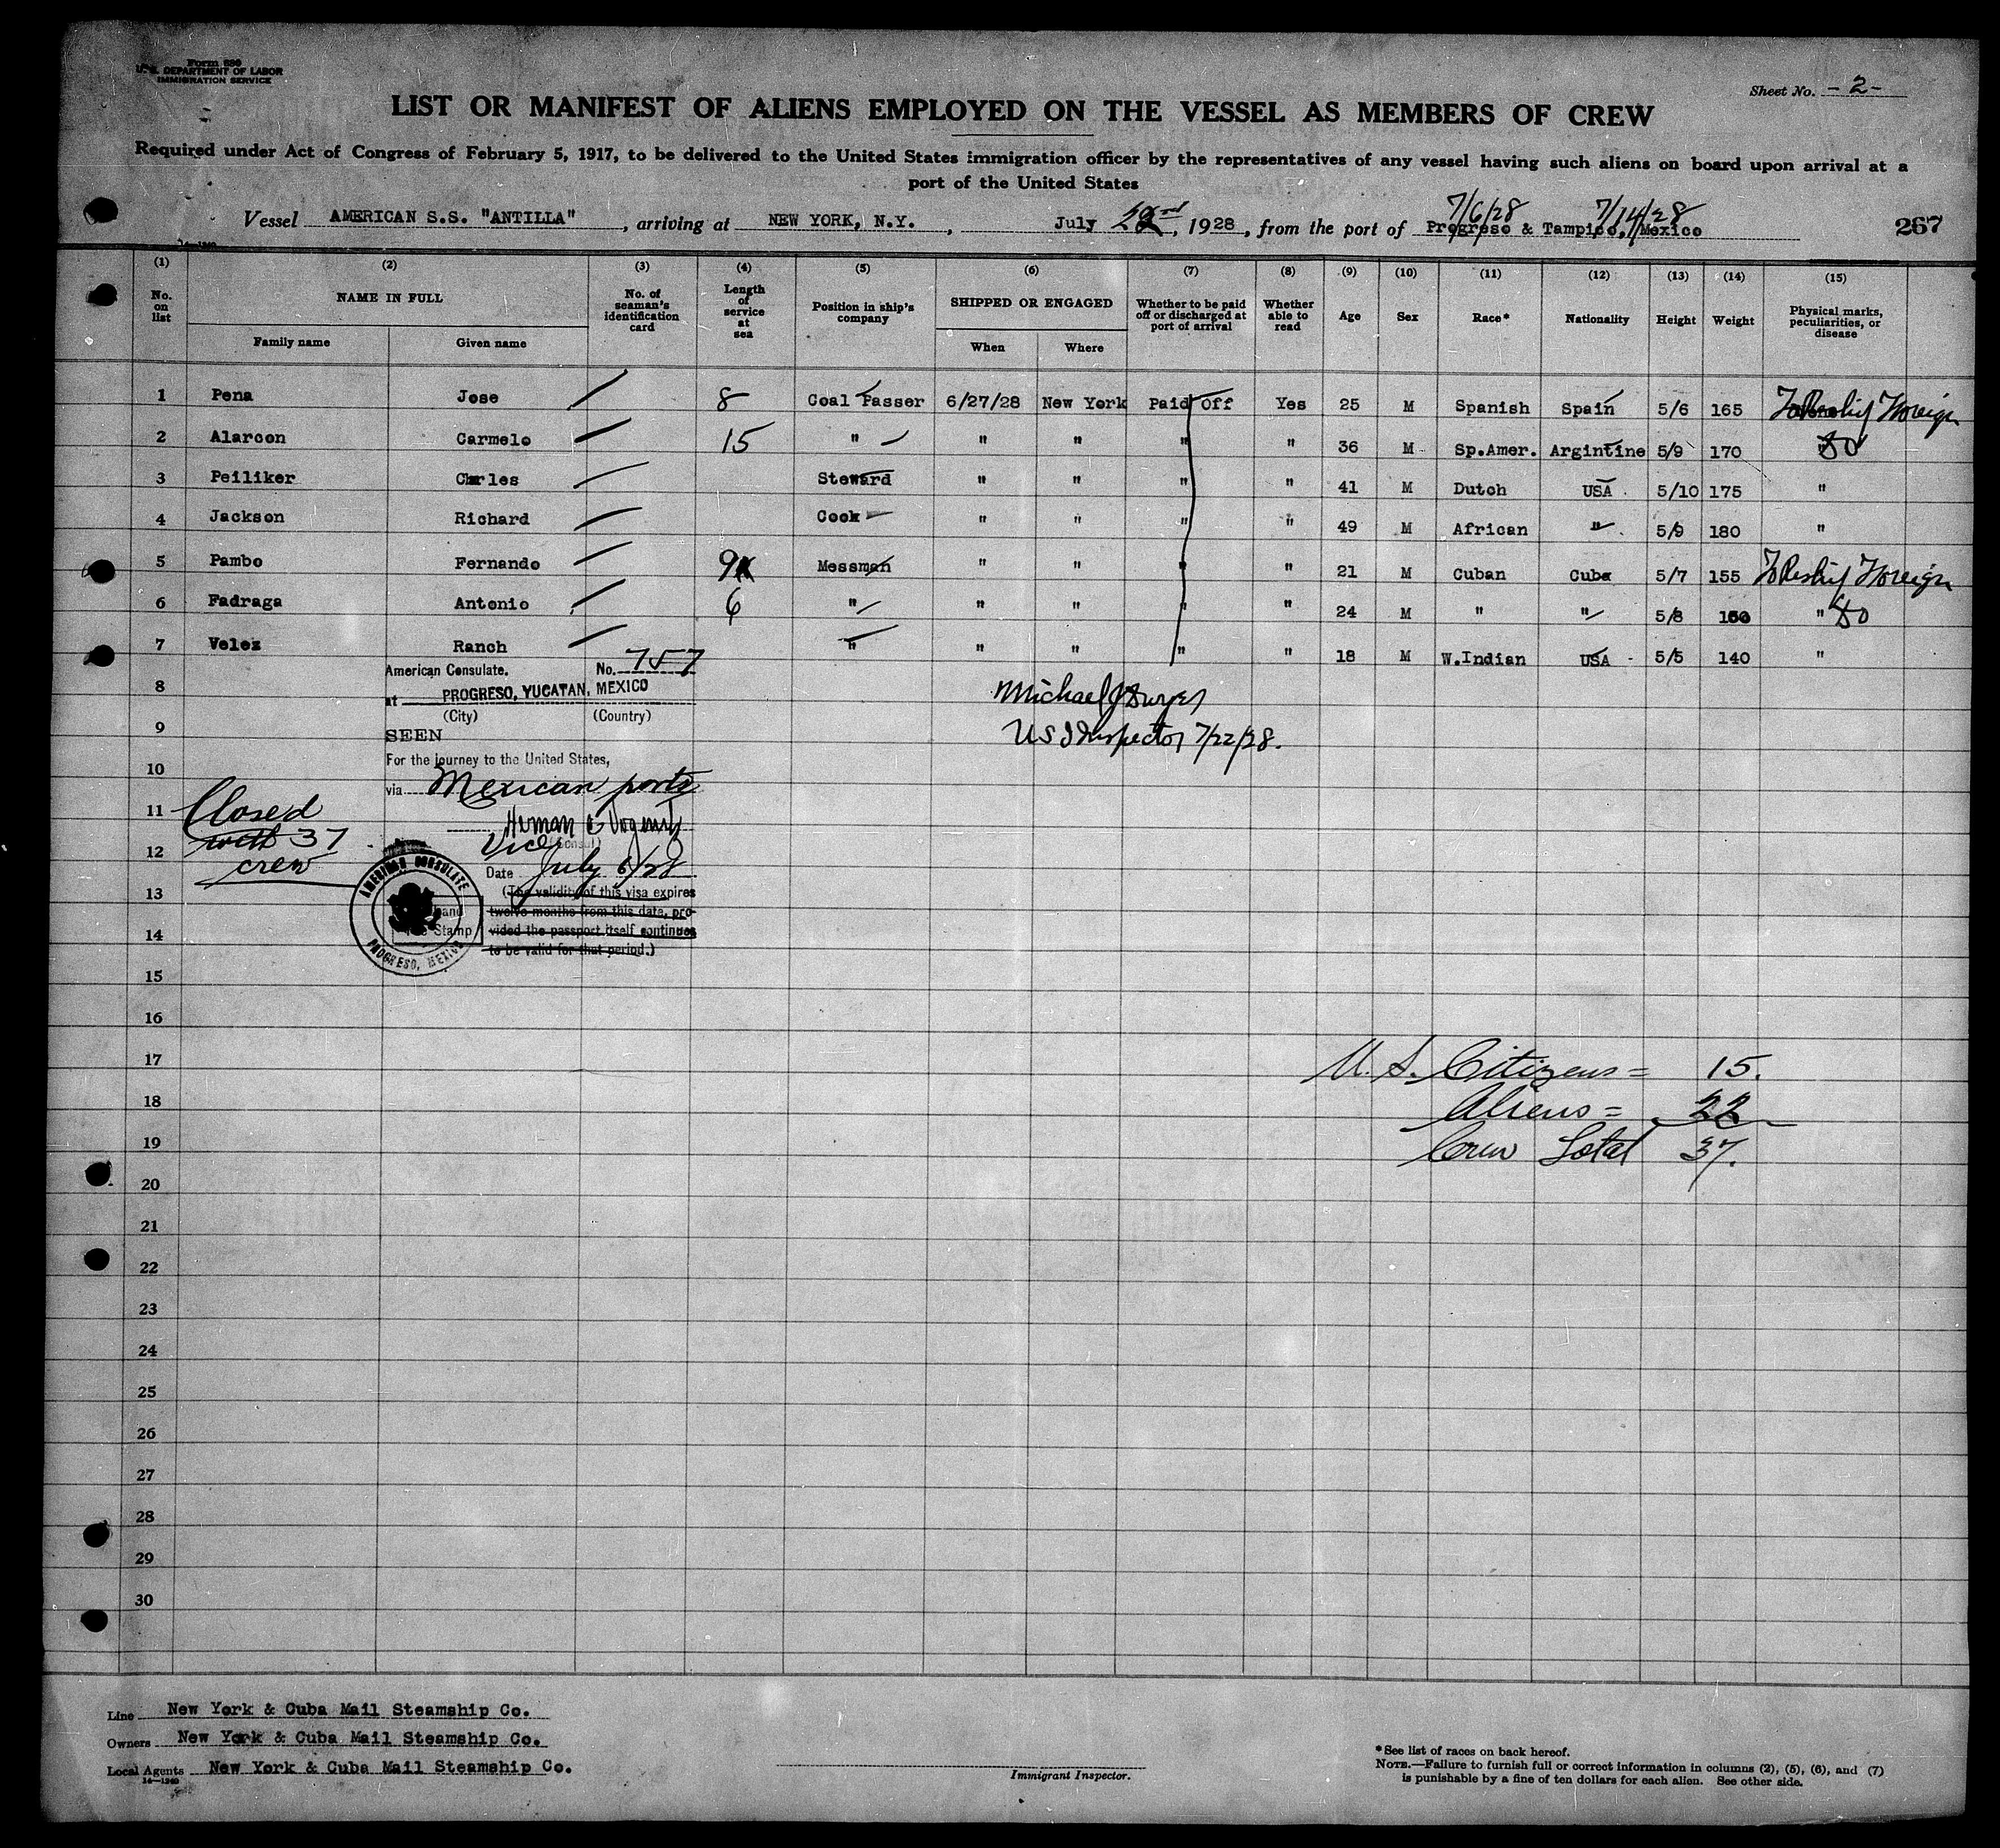 Form 686
U. S. DEPARTMENT OF LABOR
IMMIGRATION SERVICE
Sheet No. -2-
LIST OR MANIFEST OF ALIENS EMPLOYED ON THE VESSEL AS MEMBERS OF CREW
Required under Act of Congress of February 5, 1917, to be delivered to the United States immigration officer by the representatives of any vessel having such aliens on board upon arrival at a
port of the United States
7/6/28 7/14/28
Vessel AMERICAN S.S. "ANTILLA", arriving at NEW YORK, N.Y., July 22nd, 1928, from the port of Progreso & Tampico, Mexico 267
(1) (2) (3) (4) (5) (6) (7) (8) (9) (10) (11) (12) (13) (14) (15)
No. on list NAME IN FULL No. of seaman's identification card Length of service at sea Position in ship's company SHIPPED OR ENGAGED Whether to be paid off or discharged at port of arrival Whether able to read Age Sex Race* Nationality Height Weight Physical marks, peculiarities, or disease
Family name Given name When Where
1 Pena Jose 8 Coal Passer 6/27/28 New York Paid Off Yes 25 M Spanish Spain 5/6 165 To Reship Foreign
2 Alarcon Carmelo 15 " " " " " 36 M Sp.Amer. Argintine 5/9 170 " do
3 Peiliker Charles Steward " " " " 41 M Dutch USA 5/10 175 "
4 Jackson Richard Cook " " " " 49 M African " 5/9 180 "
5 Pambo Fernando 9 Messman " " " " 21 M Cuban Cuba 5/7 155 To Reship Foreign
6 Fadraga Antonio 6 " " " " " 24 M " " 5/8 160 " do
7 Velez Ranch " " " " " 18 M W.Indian USA 5/5 140 "
American Consulate. No. 757
8
at PROGRESO, YUCATAN, MEXICO
(City) (Country)
Michael J Dwyer
9
SEEN
U S I Inspector 7/22/28.
For the journey to the United States,
10
via Mexican ports
11
Closed
with 37
crew
Herman
Vice (Consul)
12
Date July 6/28
13
(The validity of this visa expires
twelve months from this date, pro-
vided the passport itself continues
to be valid for that period.)
AMERICAN CONSULATE
PROGRESO, MEXICO
and
Stamp
14
15
16
17 U. S. Citizens = 15.
18 Aliens = 22
19 Crew Total 37.
20
21
22
23
24
25
26
27
28
29
30
Line New York & Cuba Mail Steamship Co.
Owners New York & Cuba Mail Steamship Co.
Local Agents New York & Cuba Mail Steamship Co.
14—1240
Immigrant Inspector.
*See list of races on back hereof.
NOTE.—Failure to furnish full or correct information in columns (2), (5), (6), and (7)
is punishable by a fine of ten dollars for each alien. See other side.